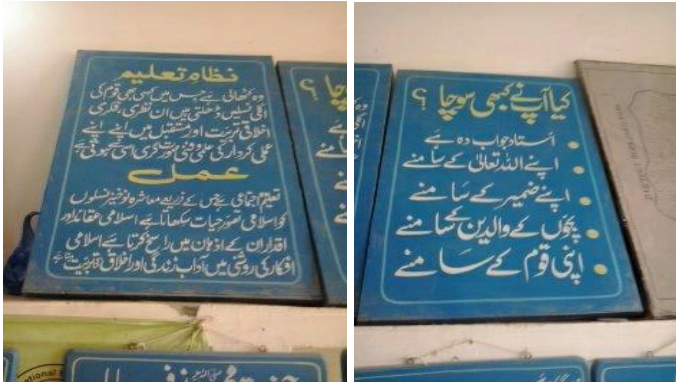 نظامِ تعلیم
وہ کٹھالی ہے جس میں کسی بھی قوم کی
اگلی نسلیں ڈھلتی ہیں ان نظری، فکری
اخلاقی تربیت اور مستقبل میں اپنے اپنے
عملی کردار کی علمی و فنی صورت گری اسی سے ہوتی ہے
عمل
تعلیم اجتماعی ہے جس کے ذریعہ معاشرہ نوخیز نسلوں
کو اسلامی تصور حیات سکھاتا ہے اسلامی عقائد اور
اقدار ان کے اذہان میں راسخ کرتا ہے اسلامی
افکار کی روشنی میں آداب زندگی اور اخلاق تربیت
چا ؟
کیا آپ نے کبھی سوچا ؟
استاد جواب دہ ہے
اپنے اللہ تعالیٰ کے سامنے
اپنے ضمیر کے سامنے
بچوں کے والدین کے سامنے
اپنی قوم کے سامنے